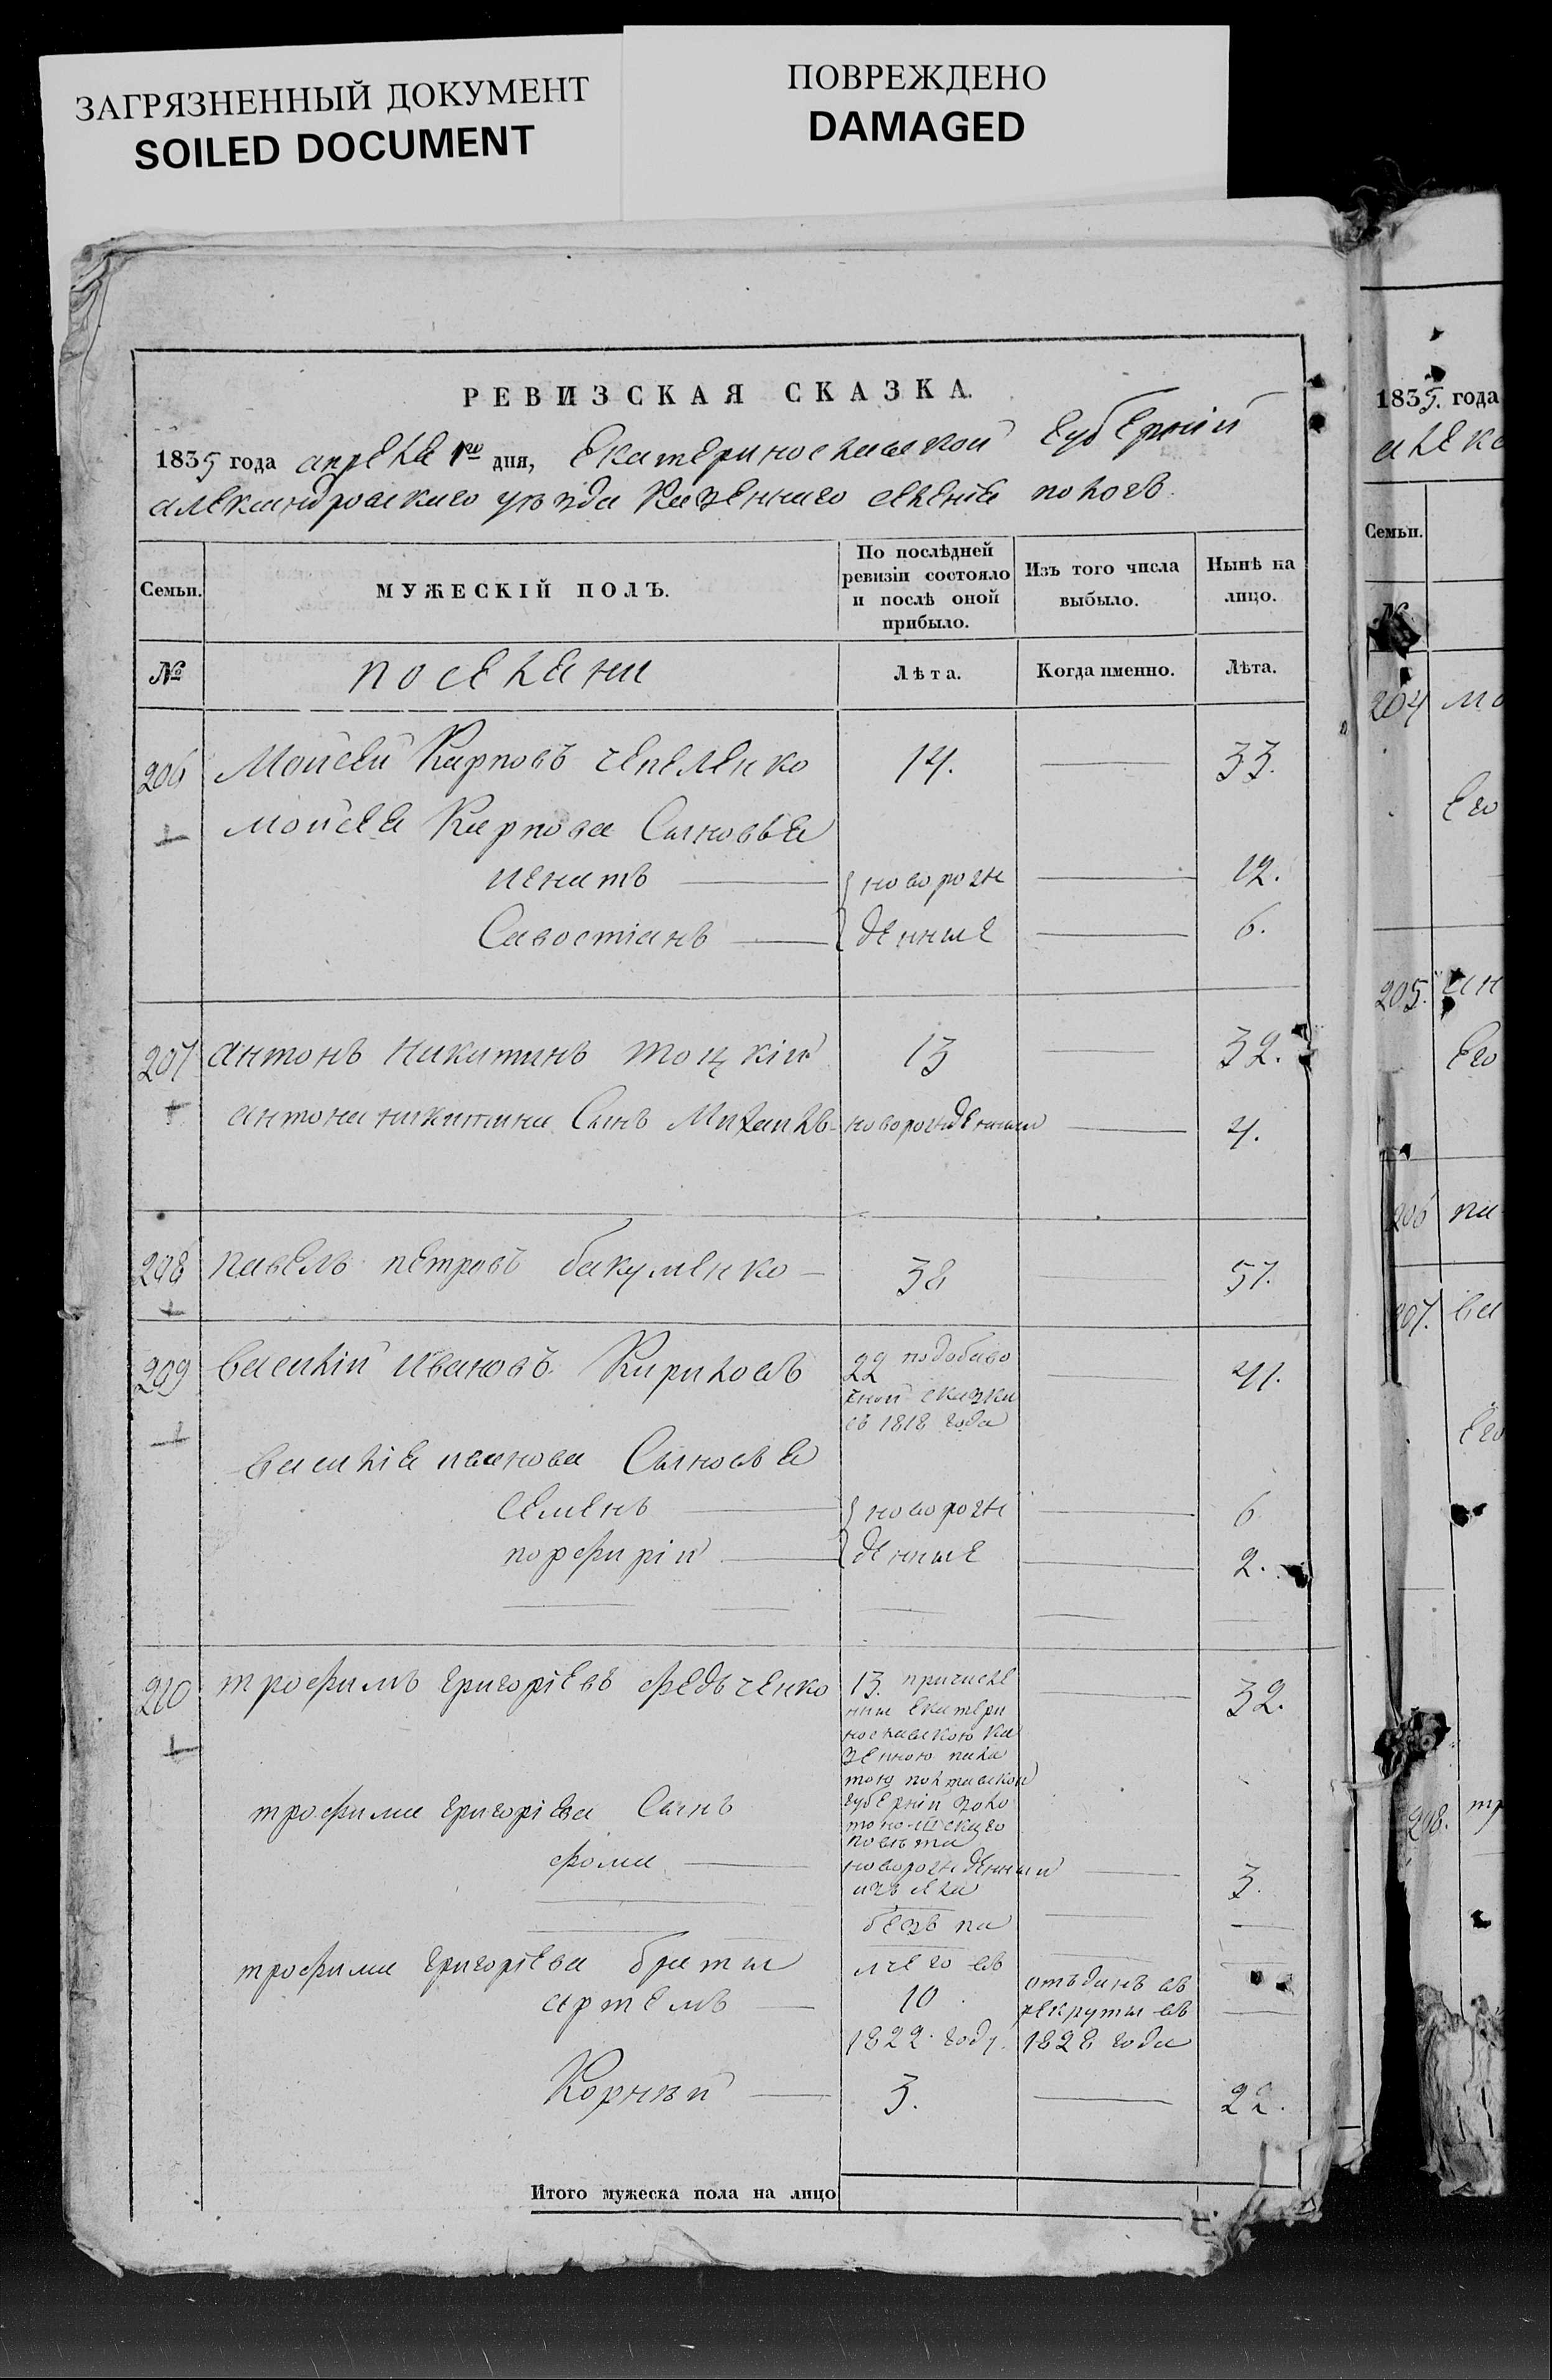 ЗАГРЯЗНЕННЫЙ ДОКУМЕНТ
SOILED DOCUMENT
ПОВРЕЖДЕНО
DAMAGED
РЕВИЗСКАЯ СКАЗКА.
1835 года апреля 1го дня, Екатеринославской Губернии
александровскаго уѣзда Казеннаго селения пологъ.
Семьи.
МУЖЕСКІЙ ПОЛЪ.
По послѣдней ревизіи состояло и послѣ оной прибыло.
Изъ того числа выбыло.
Нынѣ на лицо.
№
поселяни
Лѣта.
Когда именно.
Лѣта.
206 Мойсей Карповъ чепеленко 14. 33.
Мойсея Карпова Сыновья
игнатъ новорож 12.
Савостіанъ денные 6.
207 антонъ никитинъ тоцкій 13 32.
антона никитина Сынъ Михаилъ новорожденный 4.
208 павелъ петровъ бакуменко 38 57.
209 василій ивановъ Кириловъ 22 подобаво 41.
чной сказки
съ 1818 года
василія иванова Сыновья
семенъ новорож 6
порфирій денные 2.
210 трофимъ григоріевъ федьченко 13. причисле 32.
ныи екатери
нославскою ка
зенною пала
тою полтавской
губерніи золо
тоношскаго
повѣта
трофима григоріева Сынъ
фома новорожденный 3.
изъ села
безъ па
трофима григоріева браты
лчего въ
артемъ 10. отъданъ въ
рекруты въ
1822 году. 1828 года
Корнѣй 3. 22.
Итого мужеска пола на лицо
1835. года
алекс
Семьи.
№
204 мо
Его
205. ан
Его
206 па
207. ва
Его
208. тр